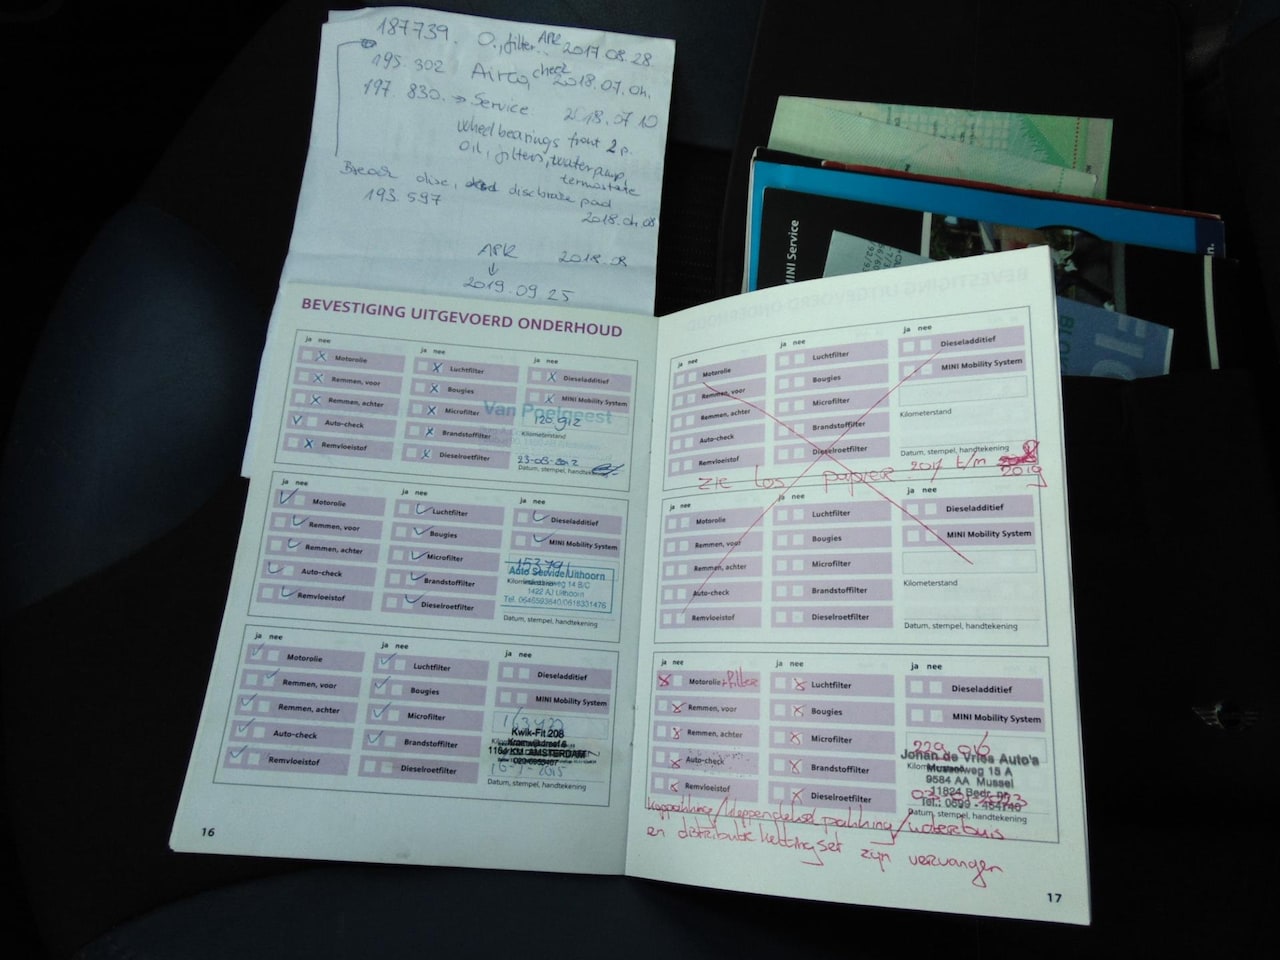 187739. O., filter. APK 2017 08.28
195.302 Airco check 2018.07.04.
197.830. → Service: 2018.07 10
wheel bearings front 2 p.
oil, filters, waterpump,
termostate
disc, disc brake pad
193.597
2018.04.08
APK 2018.08
↓
2019.09 25
MINI Service
BEVESTIGING UITGEVOERD ONDERHOUD
ja nee ja nee ja nee
Motorolie Luchtfilter Dieseladditief
Remmen, voor Bougies MINI Mobility System
Remmen, achter Microfilter Van Poelgeest
120912
Kilometerstand
Auto-check Brandstoffilter
Remvloeistof Dieselroetfilter
23-03-2012
Datum, stempel, handtekening
ja nee ja nee ja nee
Motorolie Luchtfilter Dieseladditief
Remmen, voor Bougies MINI Mobility System
Remmen, achter Microfilter
153791
Auto Service Uithoorn
Auto-check Brandstoffilter
1422 AJ Uithoorn
Tel. 0646593840/0618331476
Remvloeistof Dieselroetfilter
Datum, stempel, handtekening
ja nee ja nee ja nee
Motorolie Luchtfilter Dieseladditief
Remmen, voor Bougies MINI Mobility System
Remmen, achter Microfilter
Kwik-Fit 208
Auto-check Brandstoffilter
AMSTERDAM
Remvloeistof Dieselroetfilter
Datum, stempel, handtekening
16
ja nee ja nee ja nee
Motorolie Luchtfilter Dieseladditief
Remmen, voor Bougies MINI Mobility System
Remmen, achter Microfilter
Kilometerstand
Auto-check Brandstoffilter
Remvloeistof Dieselroetfilter
Datum, stempel, handtekening
zie los papier 2017 t/m 2019
ja nee ja nee ja nee
Motorolie Luchtfilter Dieseladditief
Remmen, voor Bougies MINI Mobility System
Remmen, achter Microfilter
Kilometerstand
Auto-check Brandstoffilter
Remvloeistof Dieselroetfilter
Datum, stempel, handtekening
ja nee ja nee ja nee
Motorolie + filter Luchtfilter Dieseladditief
Remmen, voor Bougies MINI Mobility System
Remmen, achter Microfilter
Johan de Vries Auto's
Musselweg 15 A
Auto-check Brandstoffilter
9584 AA Mussel
Remvloeistof Dieselroetfilter
Tel.: 0599 - 454740
Datum, stempel, handtekening
koppakking/kleppendeksel pakking/waterbuis
en distributie kettingset zijn vervangen
17